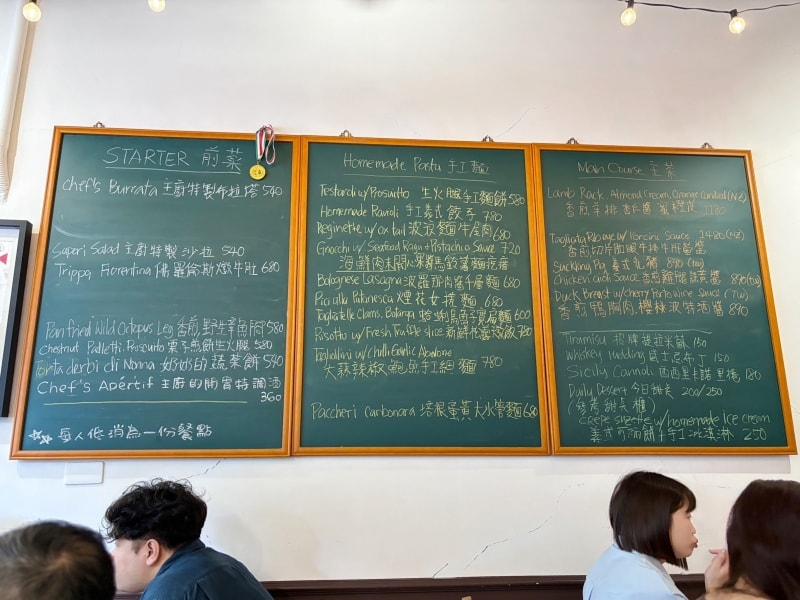 STARTER 前菜
Chef's Burrata 主廚特製布拉塔 540
Saperi Salad 主廚特製沙拉 540
Trippa Fiorentina 佛羅倫斯燉牛肚 680
Pan fried Wild Octopus Leg 香煎野生章魚 580
Chestnut Palletti, Prosciutto 栗子煎餅生火腿 580
Torta derbi di Nonna 奶奶的蔬菜餅 540
Chef's Apértif 主廚的開胃特調酒
360
每人低消為一份餐點
Homemade Pasta 手工麵
Testaroli w/ Prosuitto 生火腿手工麵餅 580
Homemade Ravioli 手工義式餃子 780
Reginette w/ ox tail 波浪麵牛尾肉 680
Gnocchi w/ Seafood Ragu & Pistachio Sauce 720
海鮮肉末開心果醬馬鈴薯麵疙瘩
Bolognese Lasagna 波羅那肉醬千層麵 680
Pici alla Putanesca 煙花女捲麵 680
Tagliatelle Clams, Bottarga 蛤蜊烏魚子寬扁麵 600
Risotto w/ Fresh Truffle slice 新鮮松露燉飯 780
Tagliolini w/ chilli Garlic Abalone
大蒜辣椒鮑魚手工細麵 780
Paccheri Carbonara 培根蛋黃大水管麵 680
Main Course 主菜
Lamb Rack Almond Cream, Orange Candied (NZ)
香煎羊排杏仁醬 橙皮 1180
Tagliata Ribeye w/ Porcini Sauce 1480
香煎切片肋眼牛排牛肝菌醬
Suckling Pig 義式乳豬 890 (tw)
Chicken 香煎雞腿 醬 890 (tw)
Duck Breast w/ cherry Porto Wine Sauce (TW)
香煎鴨胸肉 櫻桃波特酒醬 890
Tiramisu 招牌提拉米蘇 150
Whiskey Pudding 威士忌布丁 150
Sicily Cannoli 西西里卡諾里捲 180
Daily Dessert 今日甜點 200/250
(請參考甜點櫃)
crepe suzette w/ homemade Ice cream
義式可麗餅+手工冰淇淋 250